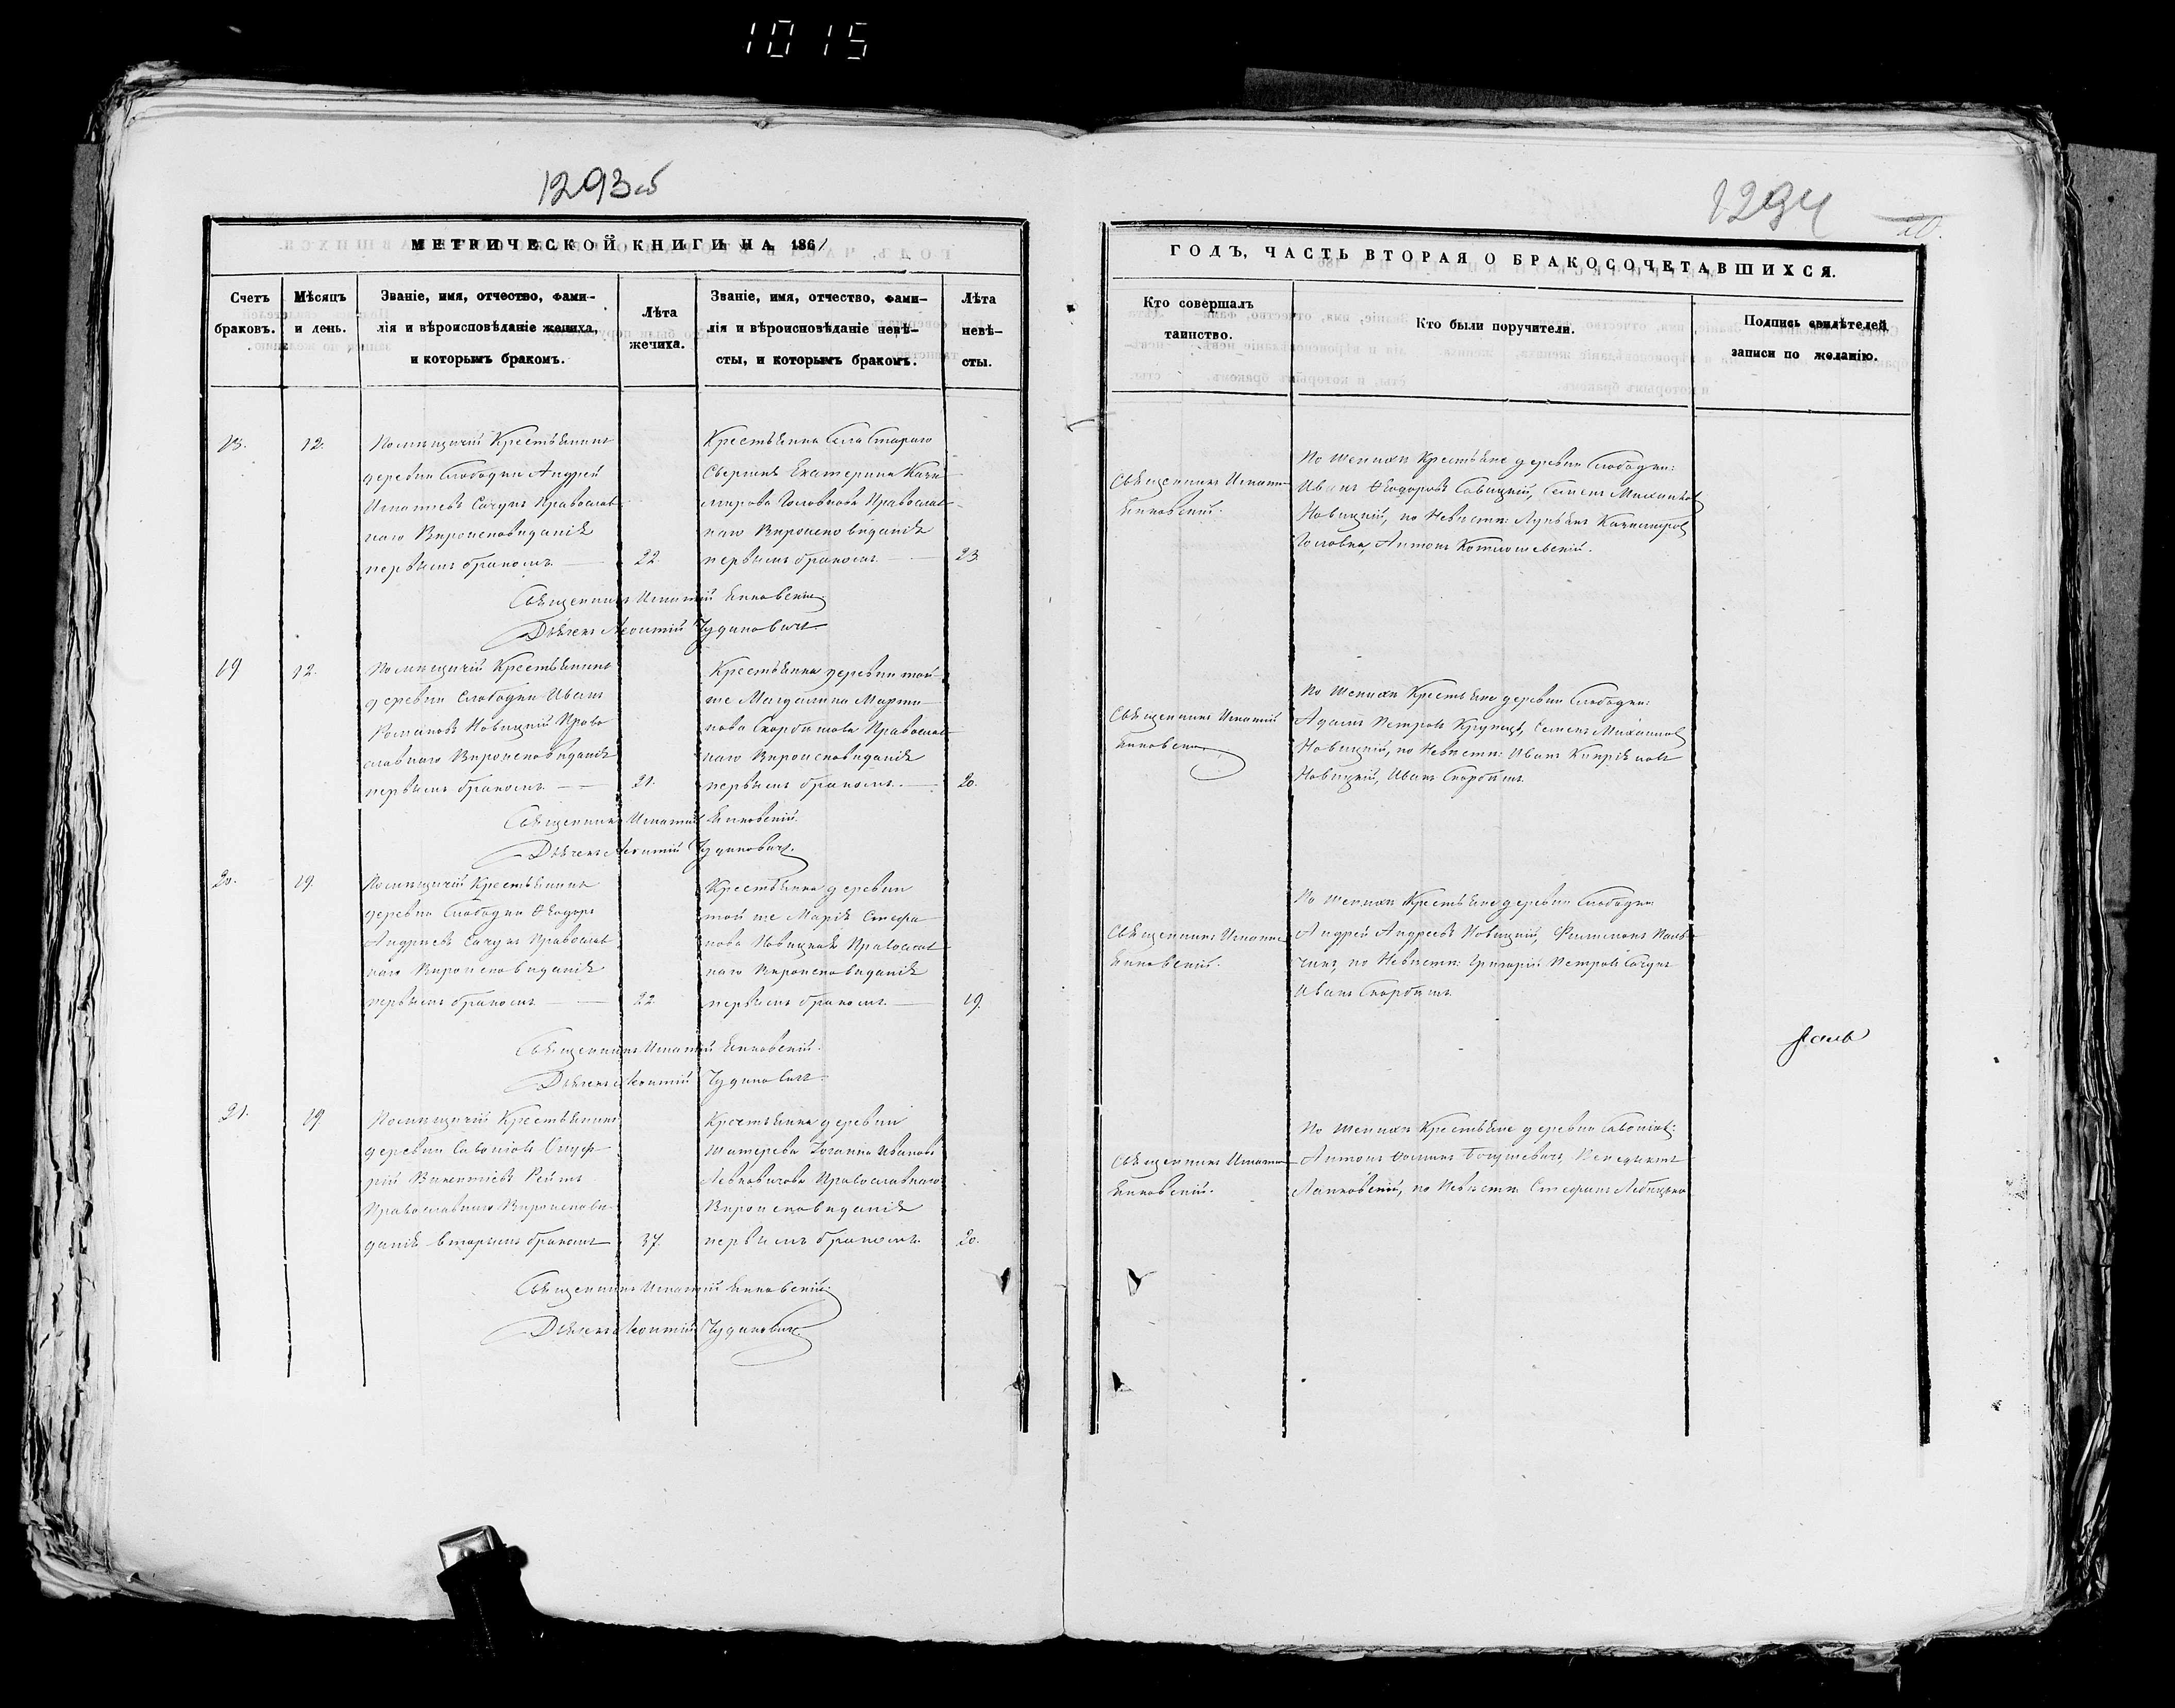 1015
1293об
МЕТРИЧЕСКОЙ КНИГИ НА 1861
Счетъ браковъ.
Мѣсяцъ и день.
Званіе, имя, отчество, фами-
лія и вѣроисповѣданіе жениха,
и которымъ бракомъ.
Лѣта
жениха.
Званіе, имя, отчество, фами-
лія и вѣроисповѣданіе невѣ-
сты, и которымъ бракомъ.
Лѣта
невѣ-
сты.
12.
Помѣщичій Крестьянинъ
деревни Слободки Андрей
Игнатіевъ Сачукъ Православ-
наго Вѣроисповѣданія
первымъ бракомъ
22.
Крестьянка Села Стараго
Свержня Екатерина Кази-
мирова Головкова Православ-
наго Вѣроисповѣданія
первымъ бракомъ
23
Священникъ Игнатій
Дьячекъ Леонтій Чудиновичъ.
19
12.
Помѣщичій Крестьянинъ
деревни Слободки Иванъ
Романовъ Новицкій Право-
славнаго Вѣроисповѣданія
первымъ бракомъ
21.
Крестьянка деревни той-
же Магдалина Марти-
нова Скорбитова Православ-
наго Вѣроисповѣданія
первымъ бракомъ.
20.
Священникъ Игнатій
Дьячекъ Леонтій Чудиновичъ.
20.
19.
Помѣщичій Крестьянинъ
деревни Слободки Ѳеодоръ
Андреевъ Сачукъ Православ-
наго Вѣроисповѣданія
первымъ бракомъ
22.
Крестьянка деревни
той же Марія Стефа-
нова Новицкая Православ-
наго Вѣроисповѣданія
первымъ бракомъ
19.
Священникъ Игнатій
Дьячекъ Леонтій Чудиновичъ.
21.
19.
Помѣщичій Крестьянинъ
деревни Савоніовъ Онуф-
рій Викентіевъ
Православнаго Вѣроисповѣ-
данія вторымъ бракомъ
37.
Крестьянка деревни
Шатерева Іоганна Иванова
Левковичова Православнаго
Вѣроисповѣданія
первымъ бракомъ.
20.
Священникъ Игнатій
Дьячекъ Леонтій Чудиновичъ.
1294
ГОДЪ, ЧАСТЬ ВТОРАЯ О БРАКОСОЧЕТАВШИХСЯ.
Кто совершалъ
таинство.
Кто были поручители.
Подпись свидѣтелей
записи по желанію.
Священникъ Игнатій
По женихѣ Крестьяне деревни Слободки:
Иванъ Ѳеодоровъ Савицкій, Семенъ Михаиловъ
Новицкій, по Невѣстѣ: Лукьянъ Казимировъ
Головка, Антонъ
Священникъ Игнатій
По женихѣ Крестьяне деревни Слободки:
Адамъ Петровъ Крупицъ, Семенъ Михаиловъ
Новицкій, по Невѣстѣ: Иванъ Кипріановъ
Новицкій, Иванъ Скорбитъ.
Священникъ Игнатій
По женихѣ Крестьяне деревни Слободки
Андрей Андреевъ Новицкій, Филимонъ
по Невѣстѣ: Григорій Петровъ Сачукъ
Иванъ Скорбитъ.
Священникъ Игнатій
По женихѣ Крестьяне деревни Савоніовъ:
Антонъ Ѳоминъ Богушевичъ, Венедыктъ
по Невѣстѣ Стефанъ